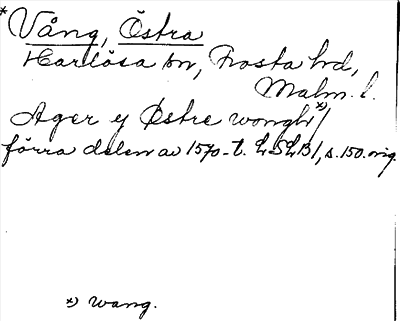 * Vång, Östra
Harlösa sn, Frosta hd,
Malm. l.
Ager y Østre wongh *) /
förra delen av 1570-t. LSLB/, s. 150. orig.
*) wang.